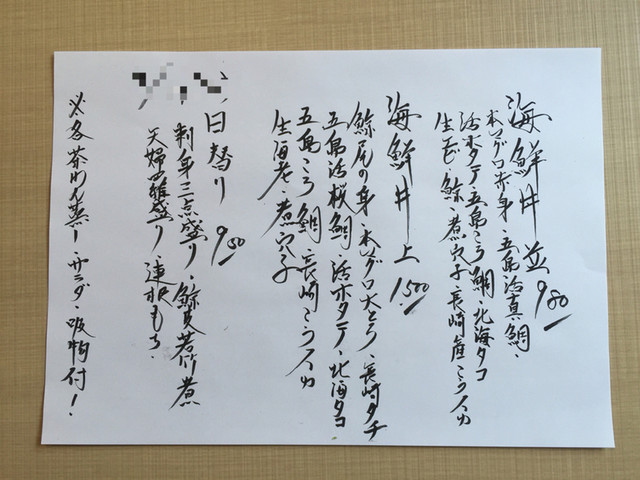 海鮮丼 並 980
本マグロ赤身、五島活真鯛、
活ホタテ、五島ころ鯛、北海タコ
生げそ、鯨、煮穴子、長崎産ミラスカ
海鮮丼 上 1500
鯨尾の身、本マグロ大とろ、長崎タチ
五島活桜鯛、活ホタテ、北海タコ、
五島ころ鯛、長崎ミラスカ
生海老、煮穴子
日替り 950
刺身三点盛り、鯨若竹煮
天婦羅盛り、蓮根もち、
各茶わん蒸し、サラダ、吸物付!